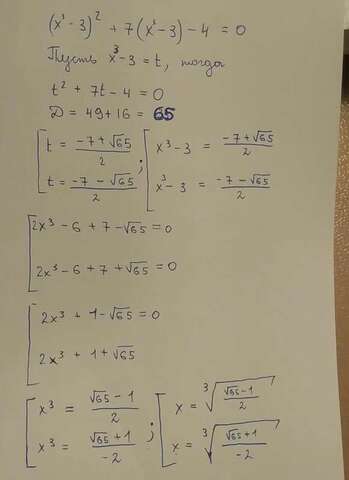 (x³ - 3)² + 7(x³ - 3) - 4 = 0
Пусть x³ - 3 = t, тогда
t² + 7t - 4 = 0
D = 49 + 16 = 65
[ t = (-7 + √65)/2 ; [ x³ - 3 = (-7 + √65)/2
t = (-7 - √65)/2 x³ - 3 = (-7 - √65)/2
[ 2x³ - 6 + 7 - √65 = 0
2x³ - 6 + 7 + √65 = 0
[ 2x³ + 1 - √65 = 0
2x³ + 1 + √65
[ x³ = (√65 - 1)/2 ; [ x = ³√((√65 - 1)/2)
x³ = (√65 + 1)/-2 x = ³√((√65 + 1)/-2)